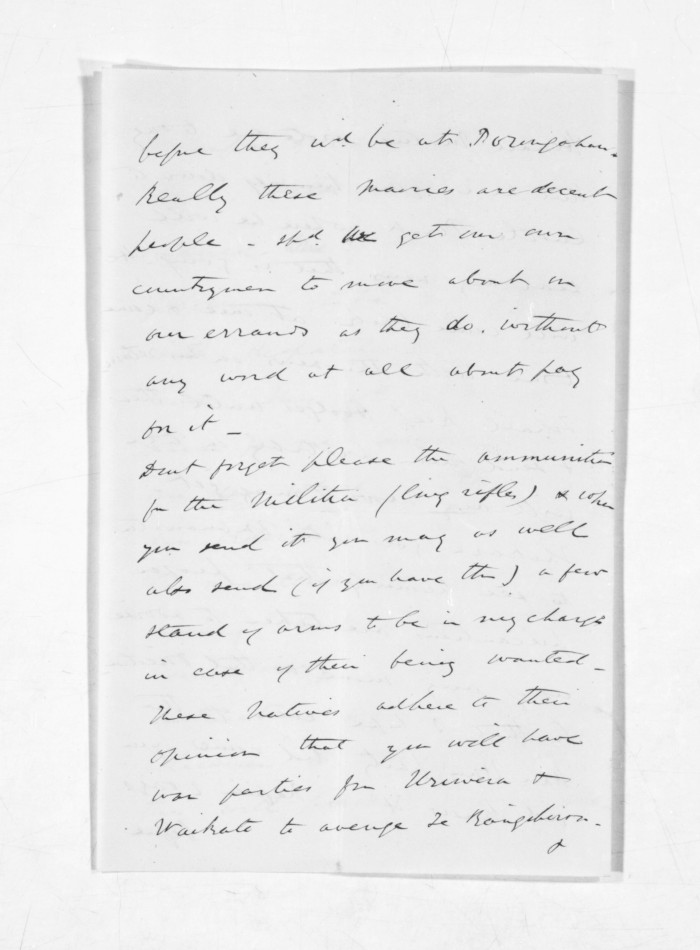 before they wd. be at Porangahau.
Really these Maories are decent
people - shd. we get our own
countrymen to move about on
our errands as they do, without
any word at all about pay
for it -
Dont forget please the ammunition
for the Militia (long rifles) & when
you send it you may as well
also send (if you have them) a few
stand of arms to be in my charge
in case of their being wanted -
These Natives adhere to their
opinion that you will have
war parties from Uriwera &
Waikato to avenge Te Rangihiroa -
&